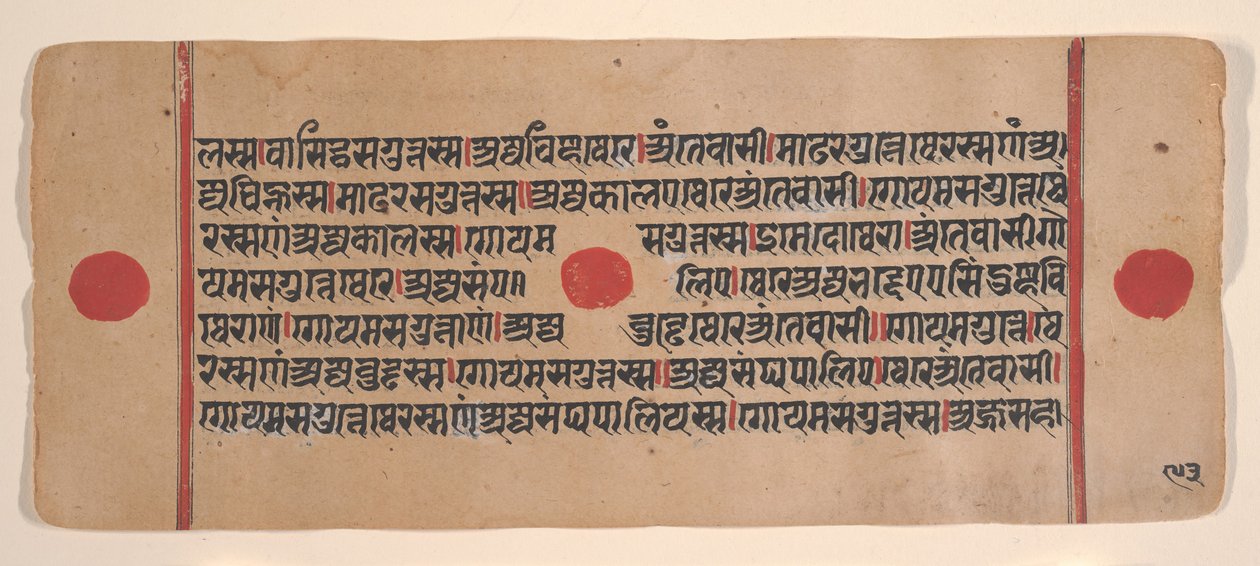 लस्स।वासिट्ठसगुत्तस्स।अज्जविण्हूथेरे।अंतेवासी।माढरगुत्तेथेरस्सणंअ
ज्जविण्हुस्स।माढरसगुत्तस्स॥अज्जकालएथेरेअंतेवासी।गोयमसगुत्तेथे
रस्सणंअज्जकालस्स।गोयम सगुत्तस्स।इमेदोथेरा।अंतेवासीगो
यमसगुत्तेथेरे।अज्जसंप लिए।थेरेअज्जभद्देएएसिंदुण्हवि
थेराणं।गोयमसगुत्ताणं।अज्ज वुड्ढेथेरेअंतेवासी॥गोयमगुत्ते।थे
रस्सणंअज्जवुड्ढस्स।गोयमसगुत्तस्स॥अज्जसंघपालिए।थेरेअंतेवासी।
गोयमसगुत्तेथेरस्सणंअज्जसंघपालियस्स।गोयमसगुत्तस्स।